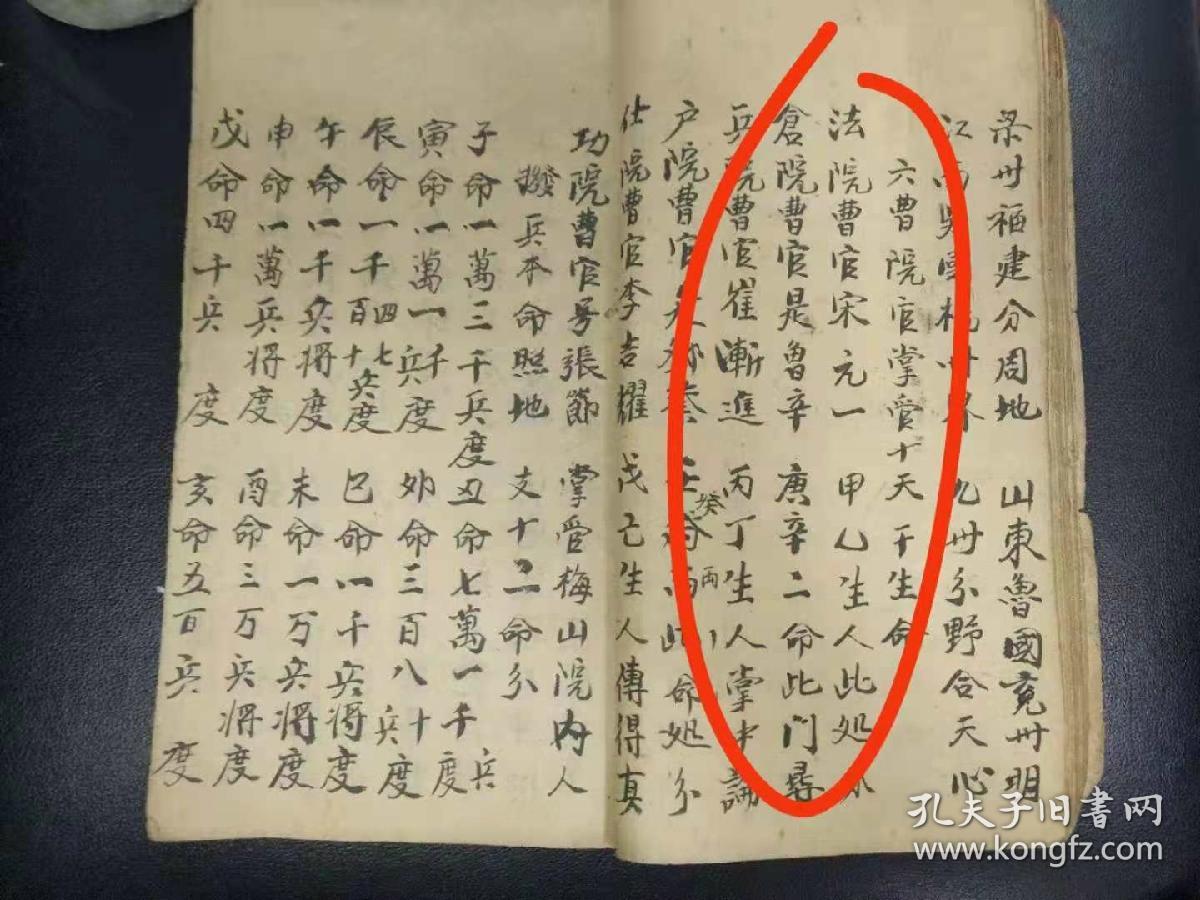 梁卅福建分周地 山東魯國兗卅明
江西吳 卅界 九卅分野合天心
六曹院官掌管十天干生命
法院曹官宋元一 甲乙生人此処
倉院曹官是魯辛 庚辛二命此門尋
兵院曹官崔漸進 丙丁生人掌中論
户院曹官 壬癸 両 此命処分
仕院曹官李吉耀 戊己生人傳得真
功院曹官号張節 掌管梅山院内人
撥兵本命照地支十二命分
子命一萬三千兵度 丑命七萬一千兵度
寅命一萬一千兵度 卯命三百八十兵度
辰命一千四百七十兵度 巳命一千兵將度
午命一千兵將度 未命一万兵將度
申命一萬兵將度 酉命三万兵將度
戌命四千兵度 亥命五百兵度
孔夫子旧書网
www.kongfz.com